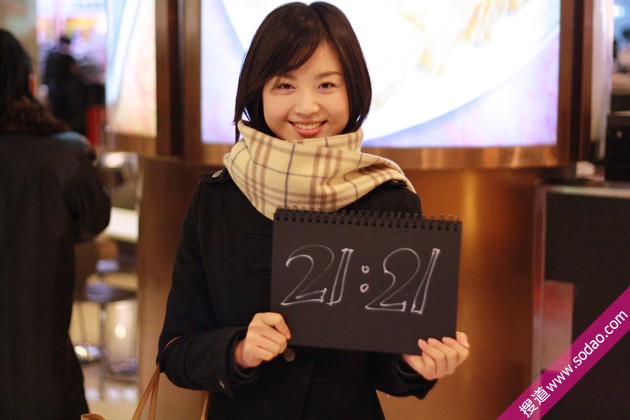 21:21
搜道www.sodao.com